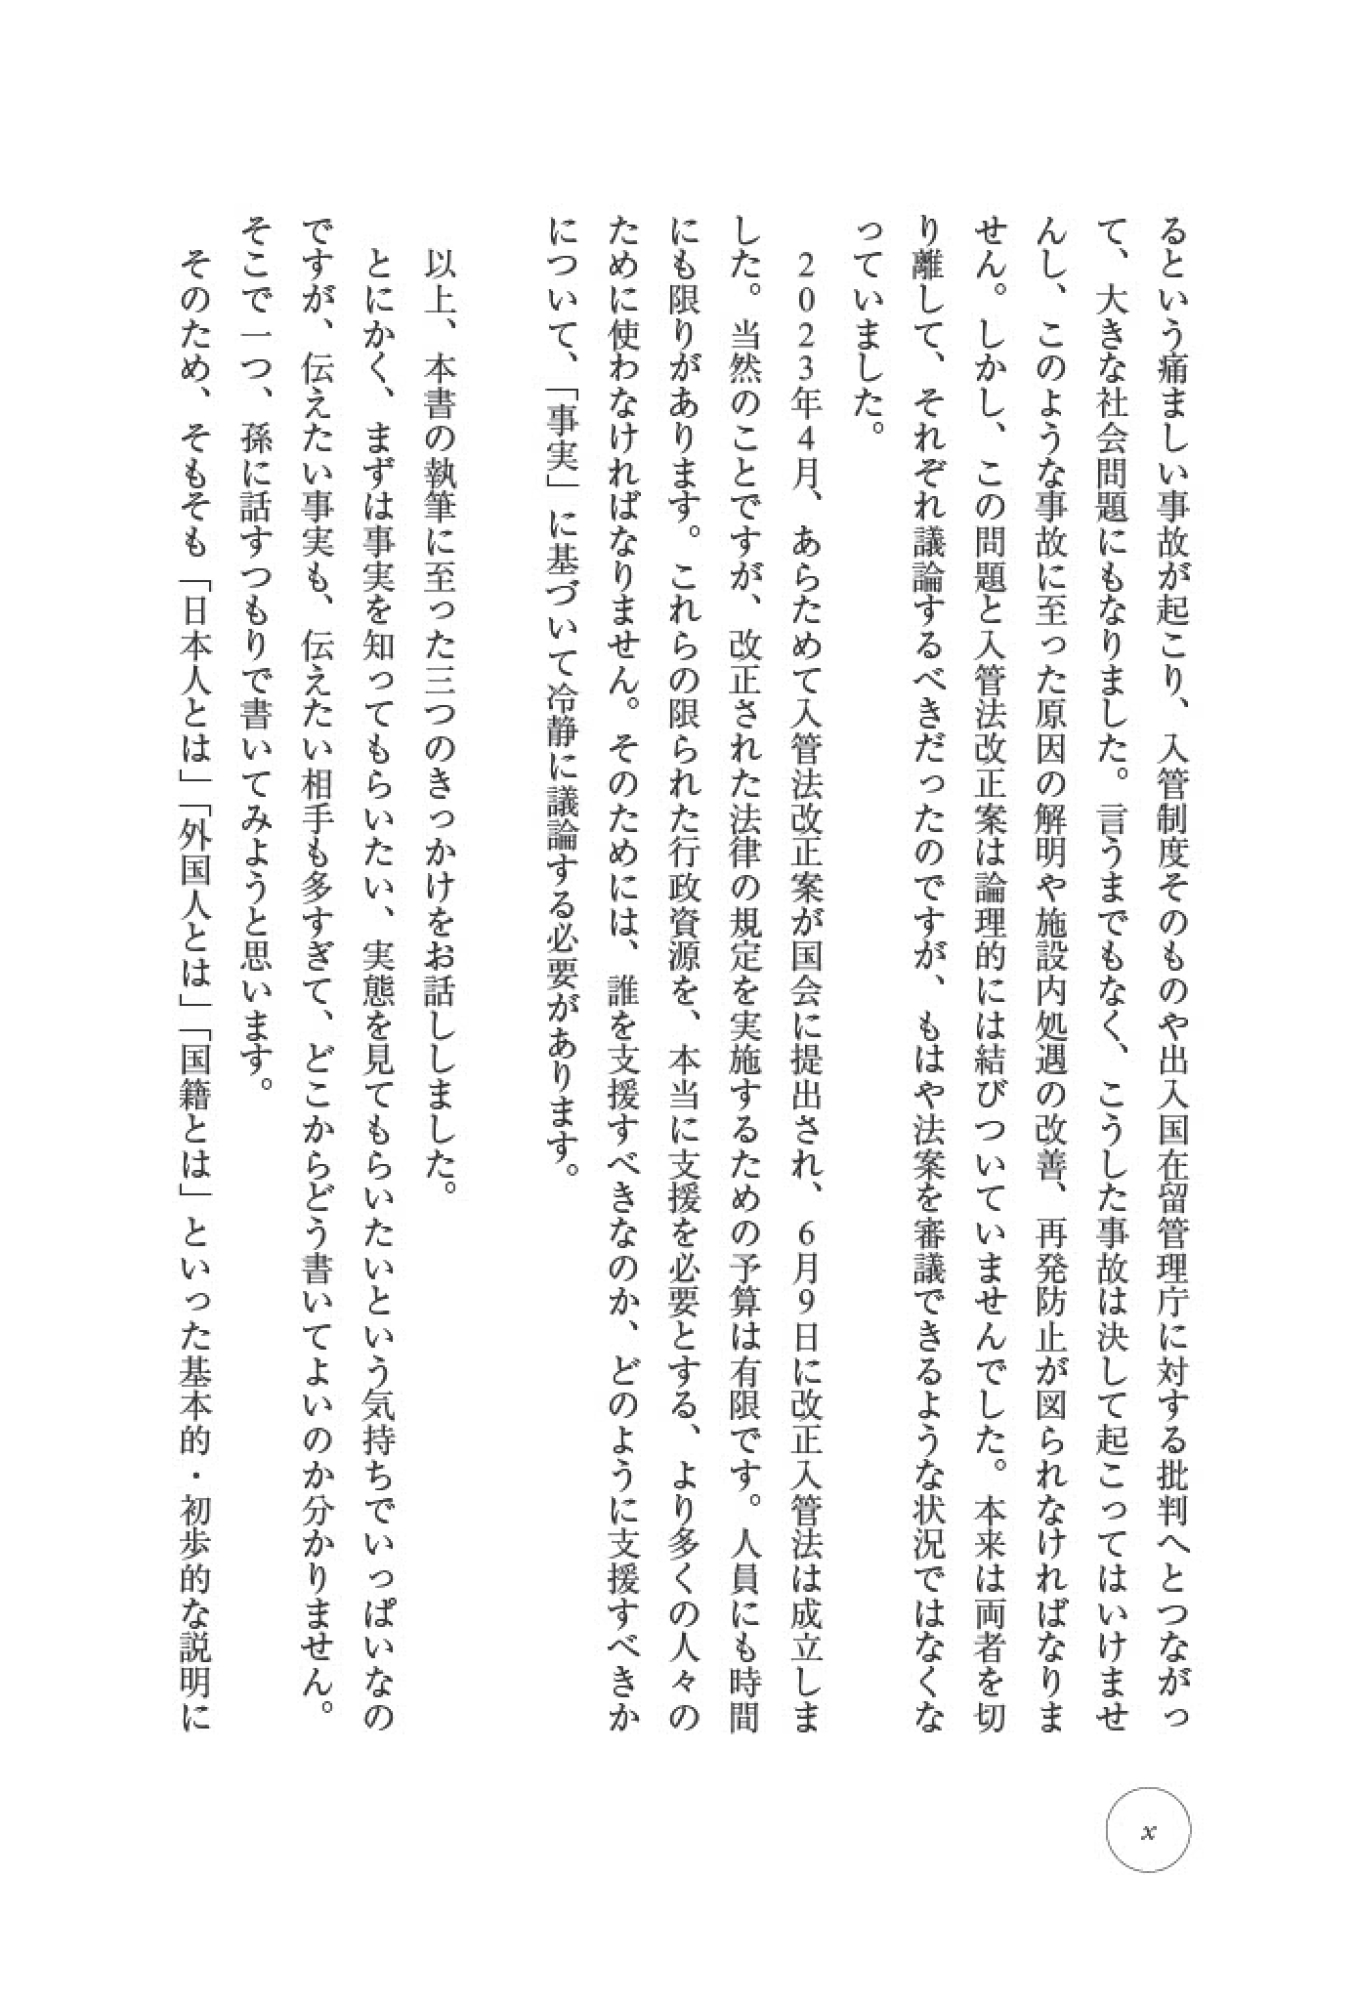 るという痛ましい事故が起こり、入管制度そのものや出入国在留管理庁に対する批判へとつながっ
て、大きな社会問題にもなりました。言うまでもなく、こうした事故は決して起こってはいけませ
んし、このような事故に至った原因の解明や施設内処遇の改善、再発防止が図られなければなりま
せん。しかし、この問題と入管法改正案は論理的には結びついていませんでした。本来は両者を切
り離して、それぞれ議論するべきだったのですが、もはや法案を審議できるような状況ではなくな
っていました。
　2023年4月、あらためて入管法改正案が国会に提出され、6月9日に改正入管法は成立しま
した。当然のことですが、改正された法律の規定を実施するための予算は有限です。人員にも時間
にも限りがあります。これらの限られた行政資源を、本当に支援を必要とする、より多くの人々の
ために使わなければなりません。そのためには、誰を支援すべきなのか、どのように支援すべきか
について、「事実」に基づいて冷静に議論する必要があります。
　以上、本書の執筆に至った三つのきっかけをお話ししました。
　とにかく、まずは事実を知ってもらいたい、実態を見てもらいたいという気持ちでいっぱいなの
ですが、伝えたい事実も、伝えたい相手も多すぎて、どこからどう書いてよいのか分かりません。
そこで一つ、孫に話すつもりで書いてみようと思います。
　そのため、そもそも「日本人とは」「外国人とは」「国籍とは」といった基本的・初歩的な説明に
x